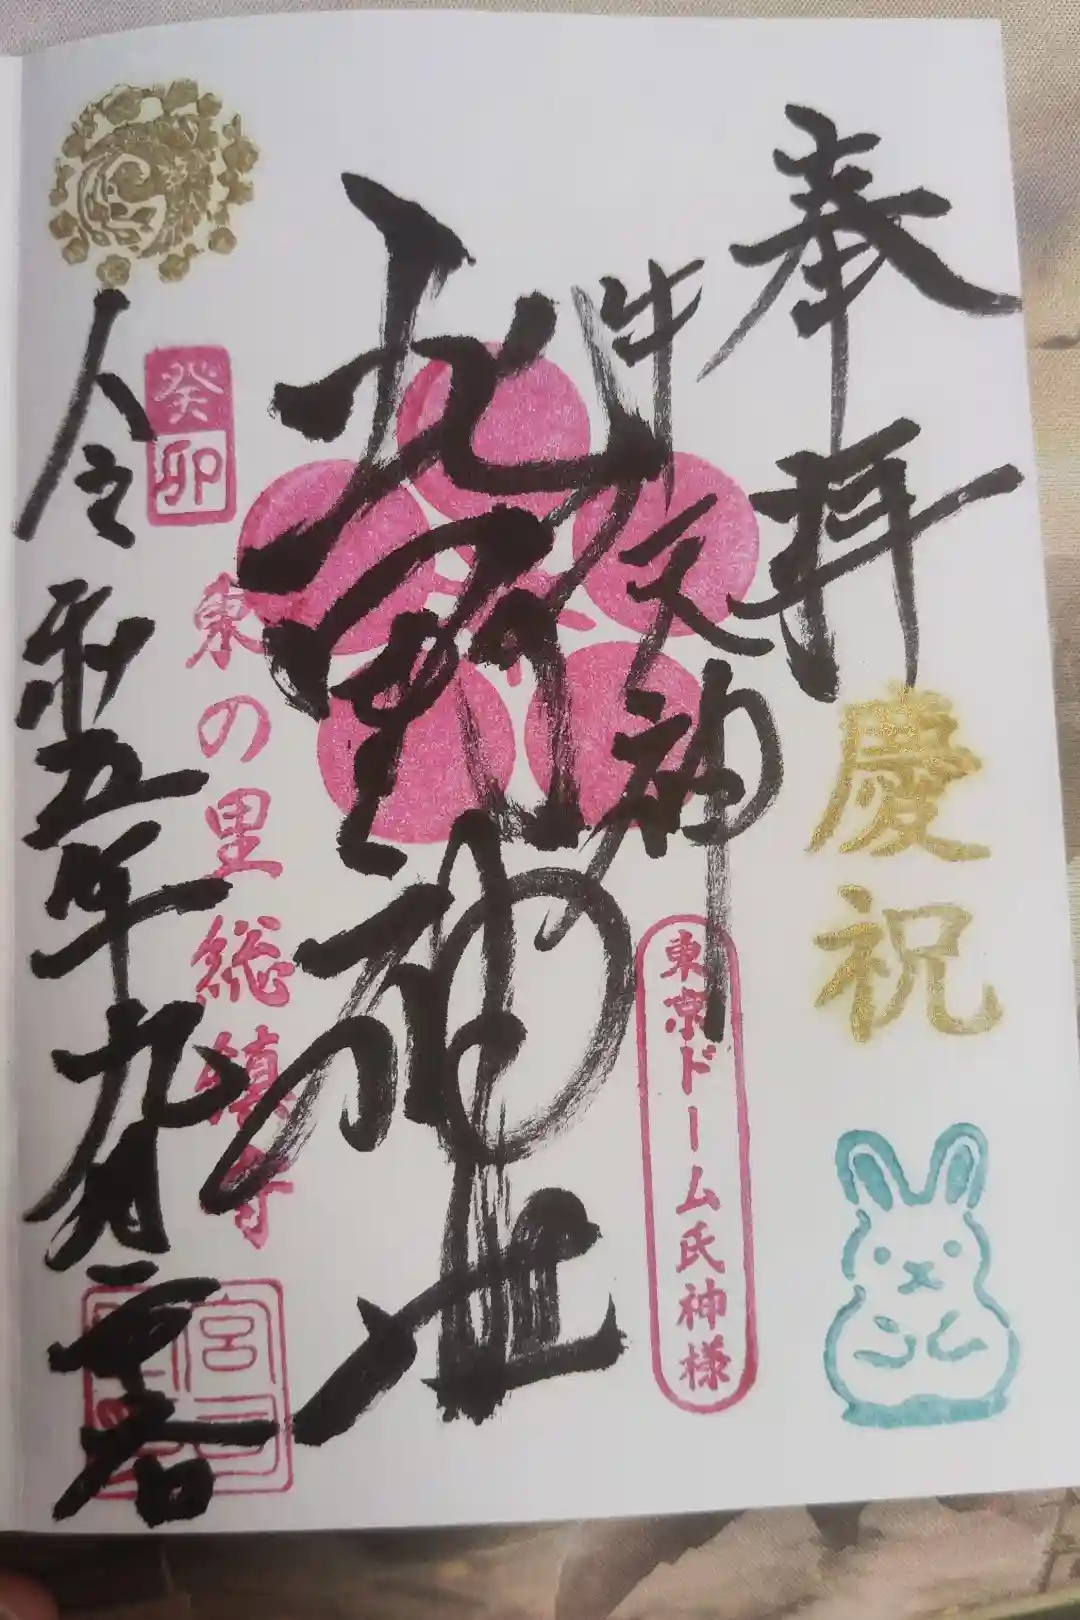 奉拝
慶祝
牛天神
東京ドーム氏神様
北野神社
東の里総鎮守
癸卯
令和五年九月一日
宮司